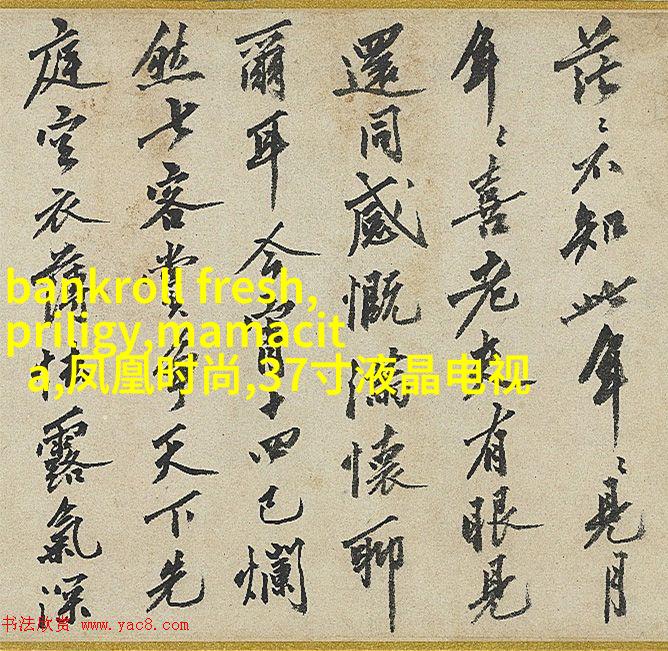 茫〻不知此年〻見月
年〻喜老夫有眼見
還同感慨滿懷聊
爾耳今宵十四已爛
然七客賞爭天下先
庭空衣薄怯露氣深
bankroll fresh,
priligy,mamacit
a,凤凰时尚,37寸液晶电视
书法欣赏 www.yac8.com